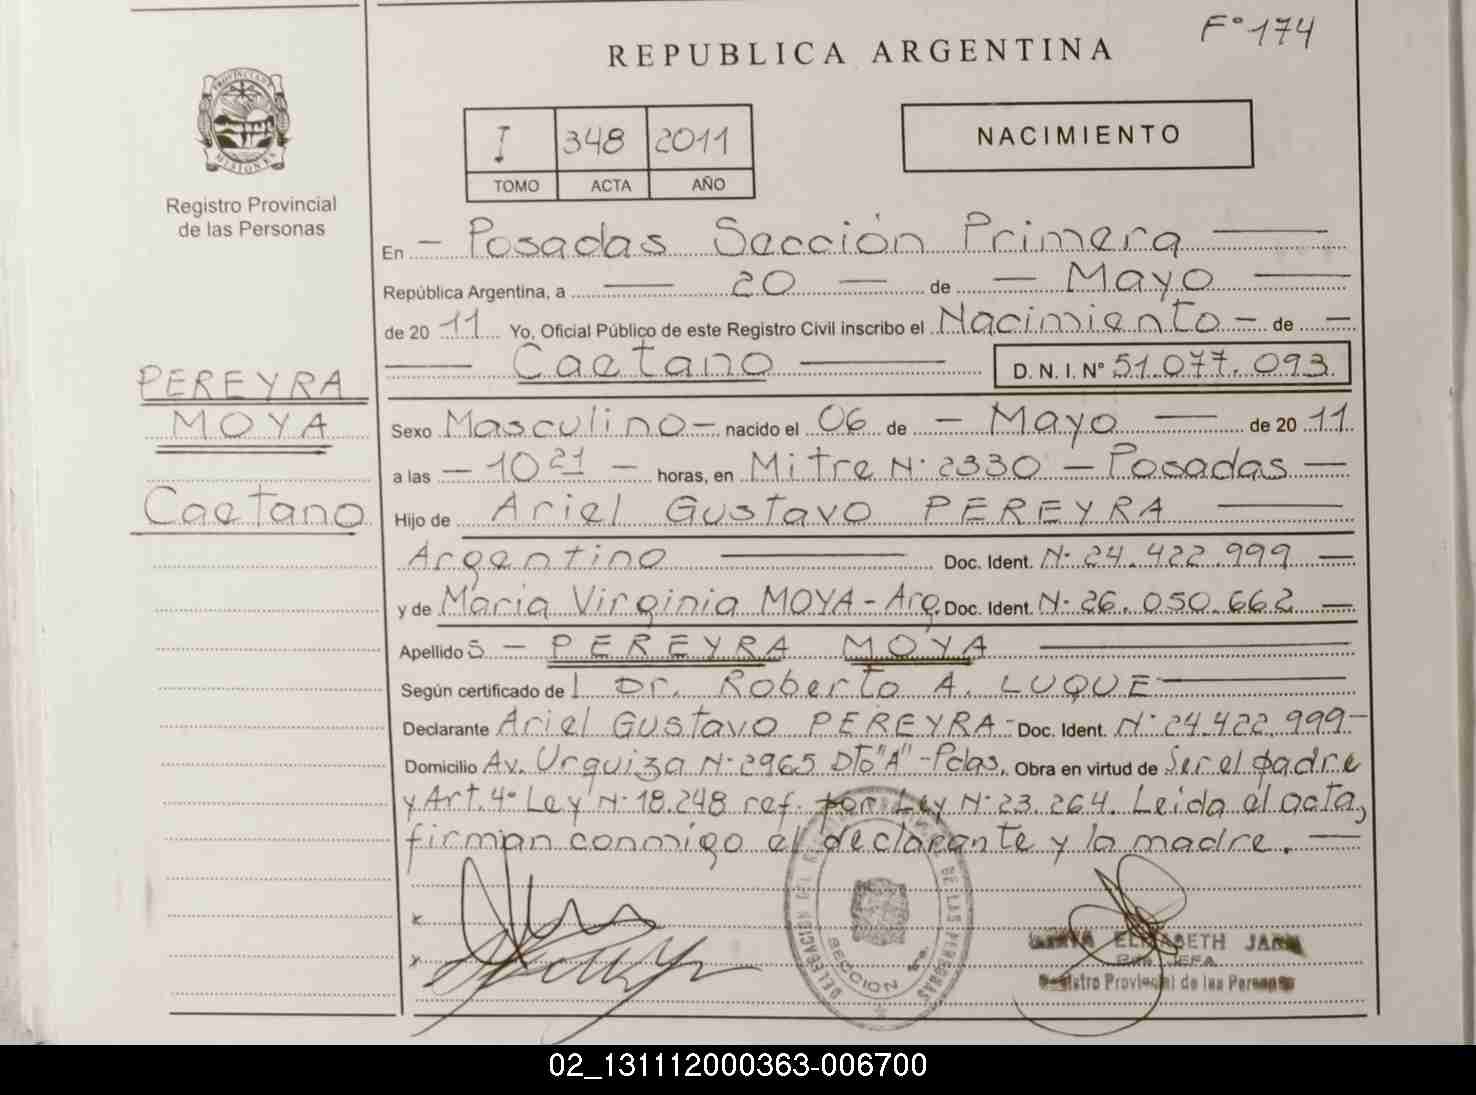 F° 174
REPUBLICA ARGENTINA
PROVINCIA DE
MISIONES
Registro Provincial
de las Personas
I 348 2011
TOMO ACTA AÑO
NACIMIENTO
En – Posadas Sección Primera
República Argentina, a — 20 — de — Mayo —
de 2011 Yo, Oficial Público de este Registro Civil inscribo el Nacimiento – de –
— Caetano — D. N. I. N° 51.077.093
PEREYRA
MOYA
Caetano
Sexo Masculino – nacido el 06 de – Mayo — de 2011
a las – 10 21 – horas, en Mitre N° 2330 – Posadas —
Hijo de Ariel Gustavo PEREYRA —
Argentino — Doc. Ident. N° 24.422.999 —
y de Maria Virginia MOYA - Arg. Doc. Ident. N° 26.050.662 —
Apellidos – PEREYRA MOYA —
Según certificado del Dr. Roberto A. LUQUE —
Declarante Ariel Gustavo PEREYRA - Doc. Ident. N° 24.422.999 –
Domicilio Av. Urquiza N° 2965 Dto "A" - Pdas. Obra en virtud de Ser el padre
y Art. 4° Ley N° 18.248 ref. por Ley N° 23.264. Leida el acta,
firman conmigo el declarante y la madre. —
DELEGACION DEL DE LAS PERSONAS
SECCION 1ra.
ELIZABETH
JEFA
Registro Provincial de las Personas
02_131112000363-006700